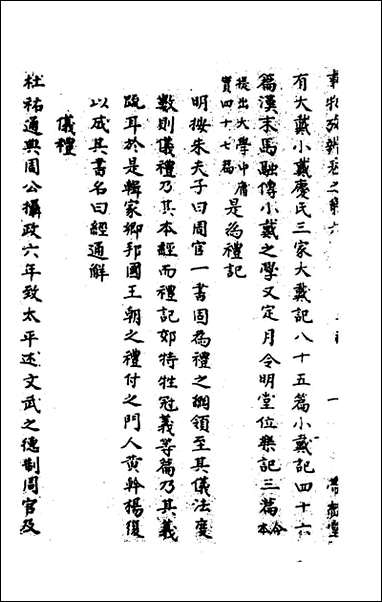 事物考辨卷之第六
有大戴小戴慶氏三家大戴記八十五篇小戴記四十六
篇漢末馬融傳小戴之學又定月令明堂位樂記三篇今本
提出大學中庸實四十七篇是為禮記
明按朱夫子曰周官一書固為禮之綱領至其儀法度
數則儀禮乃其本經而禮記郊特牲冠義等篇乃其義
疏耳於是輯家鄉邦國王朝之禮付之門人黃幹楊復
以成其書名曰經通解
儀禮
杜祐通典周公攝政六年致太平述文武之德制周官及